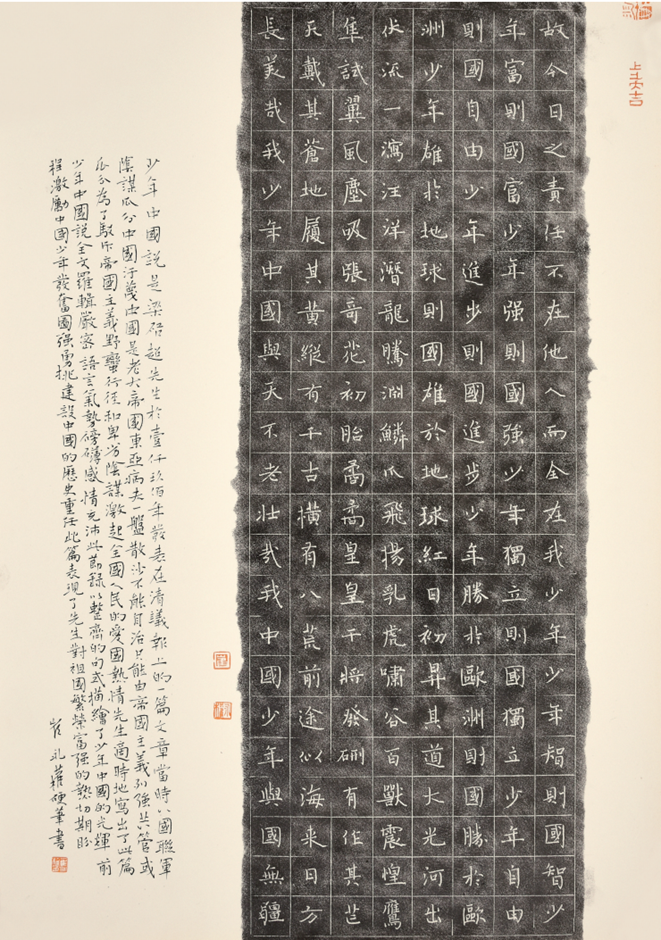 故今日之責任不在他人而全在我少年少年智則國智少
年富則國富少年强則國強少年獨立則國獨立少年自由
則國自由少年進步則國進步少年勝於歐洲則國勝於歐
洲少年雄於地球則國雄於地球紅日初昇其道大光河出
伏流一瀉汪洋潛龍騰淵鱗爪飛揚乳虎嘯谷百獸震惶鷹
隼試翼風塵吸張奇花初胎矞矞皇皇干將發硎有作其芒
天戴其蒼地履其黄縱有千古横有八荒前途似海来日方
長美哉我少年中國與天不老壯哉我中國少年與國無疆
少年中國説是梁啓超先生於壹仟玖佰年發表在清議報上的一篇文章當時八國聯軍
陰謀瓜分中國汙衊中國是老大帝國東亞病夫一盤散沙不能自治只能由帝國主義列强共管或
瓜分為了駁斥帝國主義野蠻行徑和卑劣陰謀激起全國人民的愛國熱情先生適時地寫出了此篇
少年中國説全文羅輯嚴密語言氣勢磅礴感情充沛此節録以整齊的句式描繪了少年中國的光輝前
程激勵中國少年發奮圖强勇挑建設中國的歷史重任此篇表現了先生對祖國繁榮富强的熱切期盼
崔禮蘿硬筆書